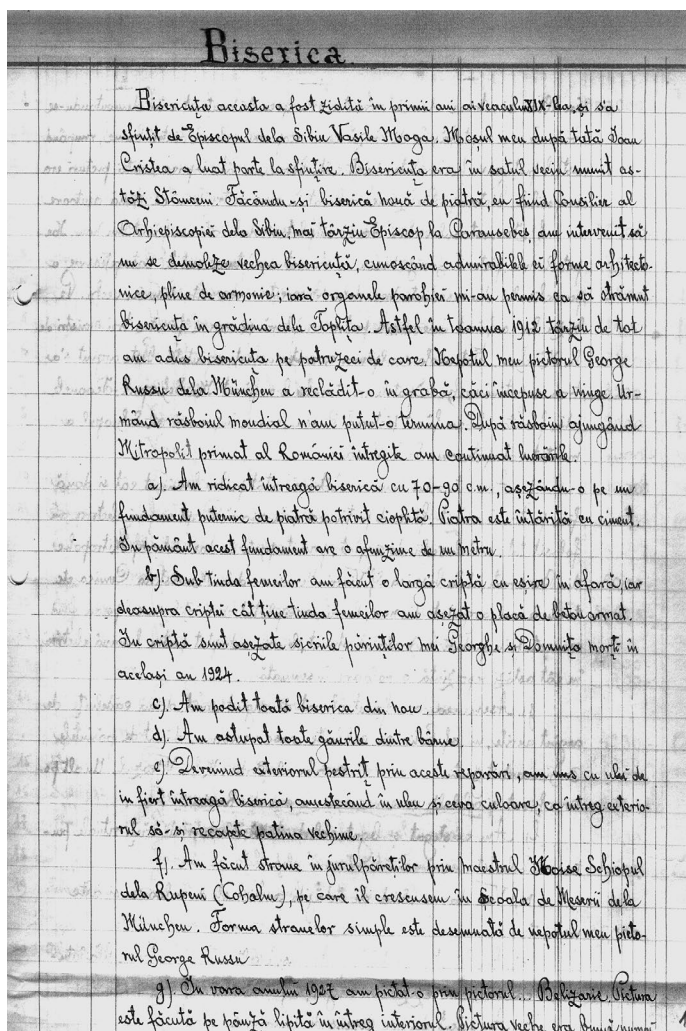 Biserica
Bisericuța aceasta a fost zidită în primii ani ai veacului XIX-lea, și s'a
sfințit de Episcopul dela Sibiu Vasile Moga. Moșul meu după tată Ioan
Cristea a luat parte la sfințire. Bisericuța era în satul vecin numit as-
tăzi Stânceni. Făcându-și biserică nouă de piatră, eu fiind Consilier al
Arhiepiscopiei dela Sibiu, mai târziu Episcop la Caransebeș, am intervenit să
nu se demoleze vechea bisericuță, cunoscând admirabilele ei forme arhitecto-
nice, pline de armonie; iară organele parohiei mi-au permis ca să strămut
bisericuța în grădina dela Toplița. Astfel în toamna 1912 târziu de tot
am adus bisericuța pe patruzeci de care. Nepotul meu pictorul George
Russu dela München a reclădit-o în grabă, căci începuse a ninge. Ur-
mând răsboiul mondial n'am putut-o termina. După răsboiu ajungând
Mitropolit primat al României întregite am continuat lucrările.
a). Am ridicat întreagă biserică cu 70-90 c.m., așezându-o pe un
fundament puternic de piatră potrivit cioplită. Piatra este întărită cu ciment.
În pământ acest fundament are o afunzime de un metru.
b) Sub tinda femeilor am făcut o largă criptă cu eșire în afară, iar
deasupra criptei cât ține tinda femeilor am așezat o placă de beton armat.
În criptă sunt așezate sicriile părinților mei Georghe și Domnița morți în
același an 1924.
c). Am podit toată biserica din nou.
d). Am astupat toate găurile dintre bârne.
e). Devenind exteriorul pestriț prin aceste reparări, am uns cu uleu de
in fiert întreagă biserică, amestecând în uleu și ceva culoare, ca întreg exterio-
rul să-și recapete patina vechime.
f). Am făcut strane în jurul păreților prin maestrul Moise Schiopul
dela Rupeni (Cohalm), pe care îl crescusem în Școala de Meserii de la
München. Forma stranelor simple este desemnată de nepotul meu picto-
rul George Russu
g). În vara anului 1927 am pictat-o prin pictorul... Belizarie. Pictura
este făcută pe pânză lipită în întreg interiorul. Pictura veche era bună numai